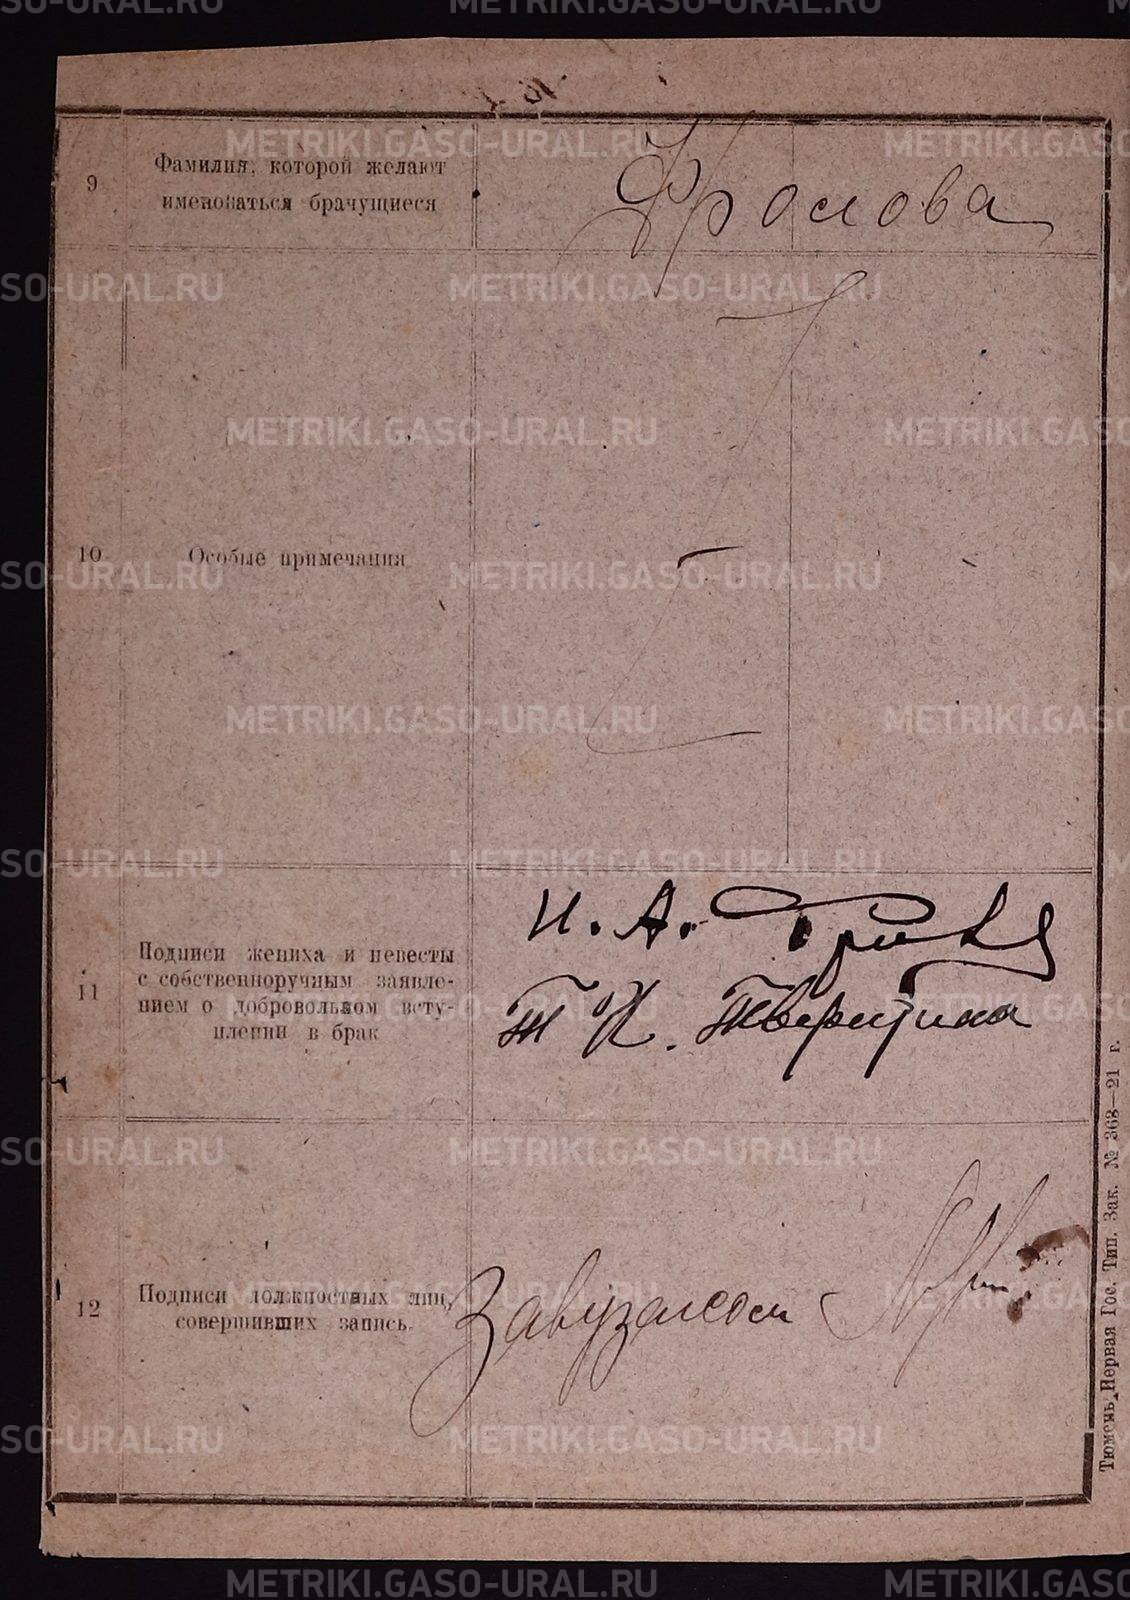 METRIKI.GASO-URAL.RU
9
Фамилия, которой желают
именоваться брачущиеся
Фролова
10
Особые примечания
11
Подписи жениха и невесты
с собственноручным заявле-
нием о добровольном всту-
плении в брак
И. А.
Т К. Тверитина
12
Подписи должностных лиц,
совершивших запись.
Завузагсом
Тюмень, Первая Гос. Тип. Зак. № 368—21 г.